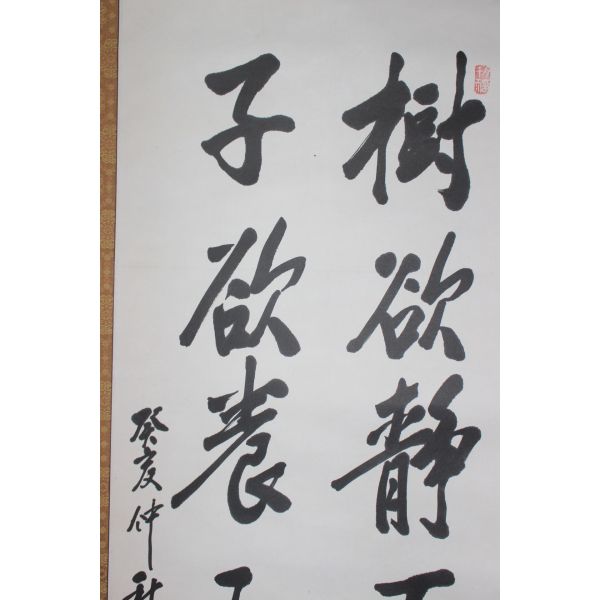 樹欲静
子欲養
癸亥仲